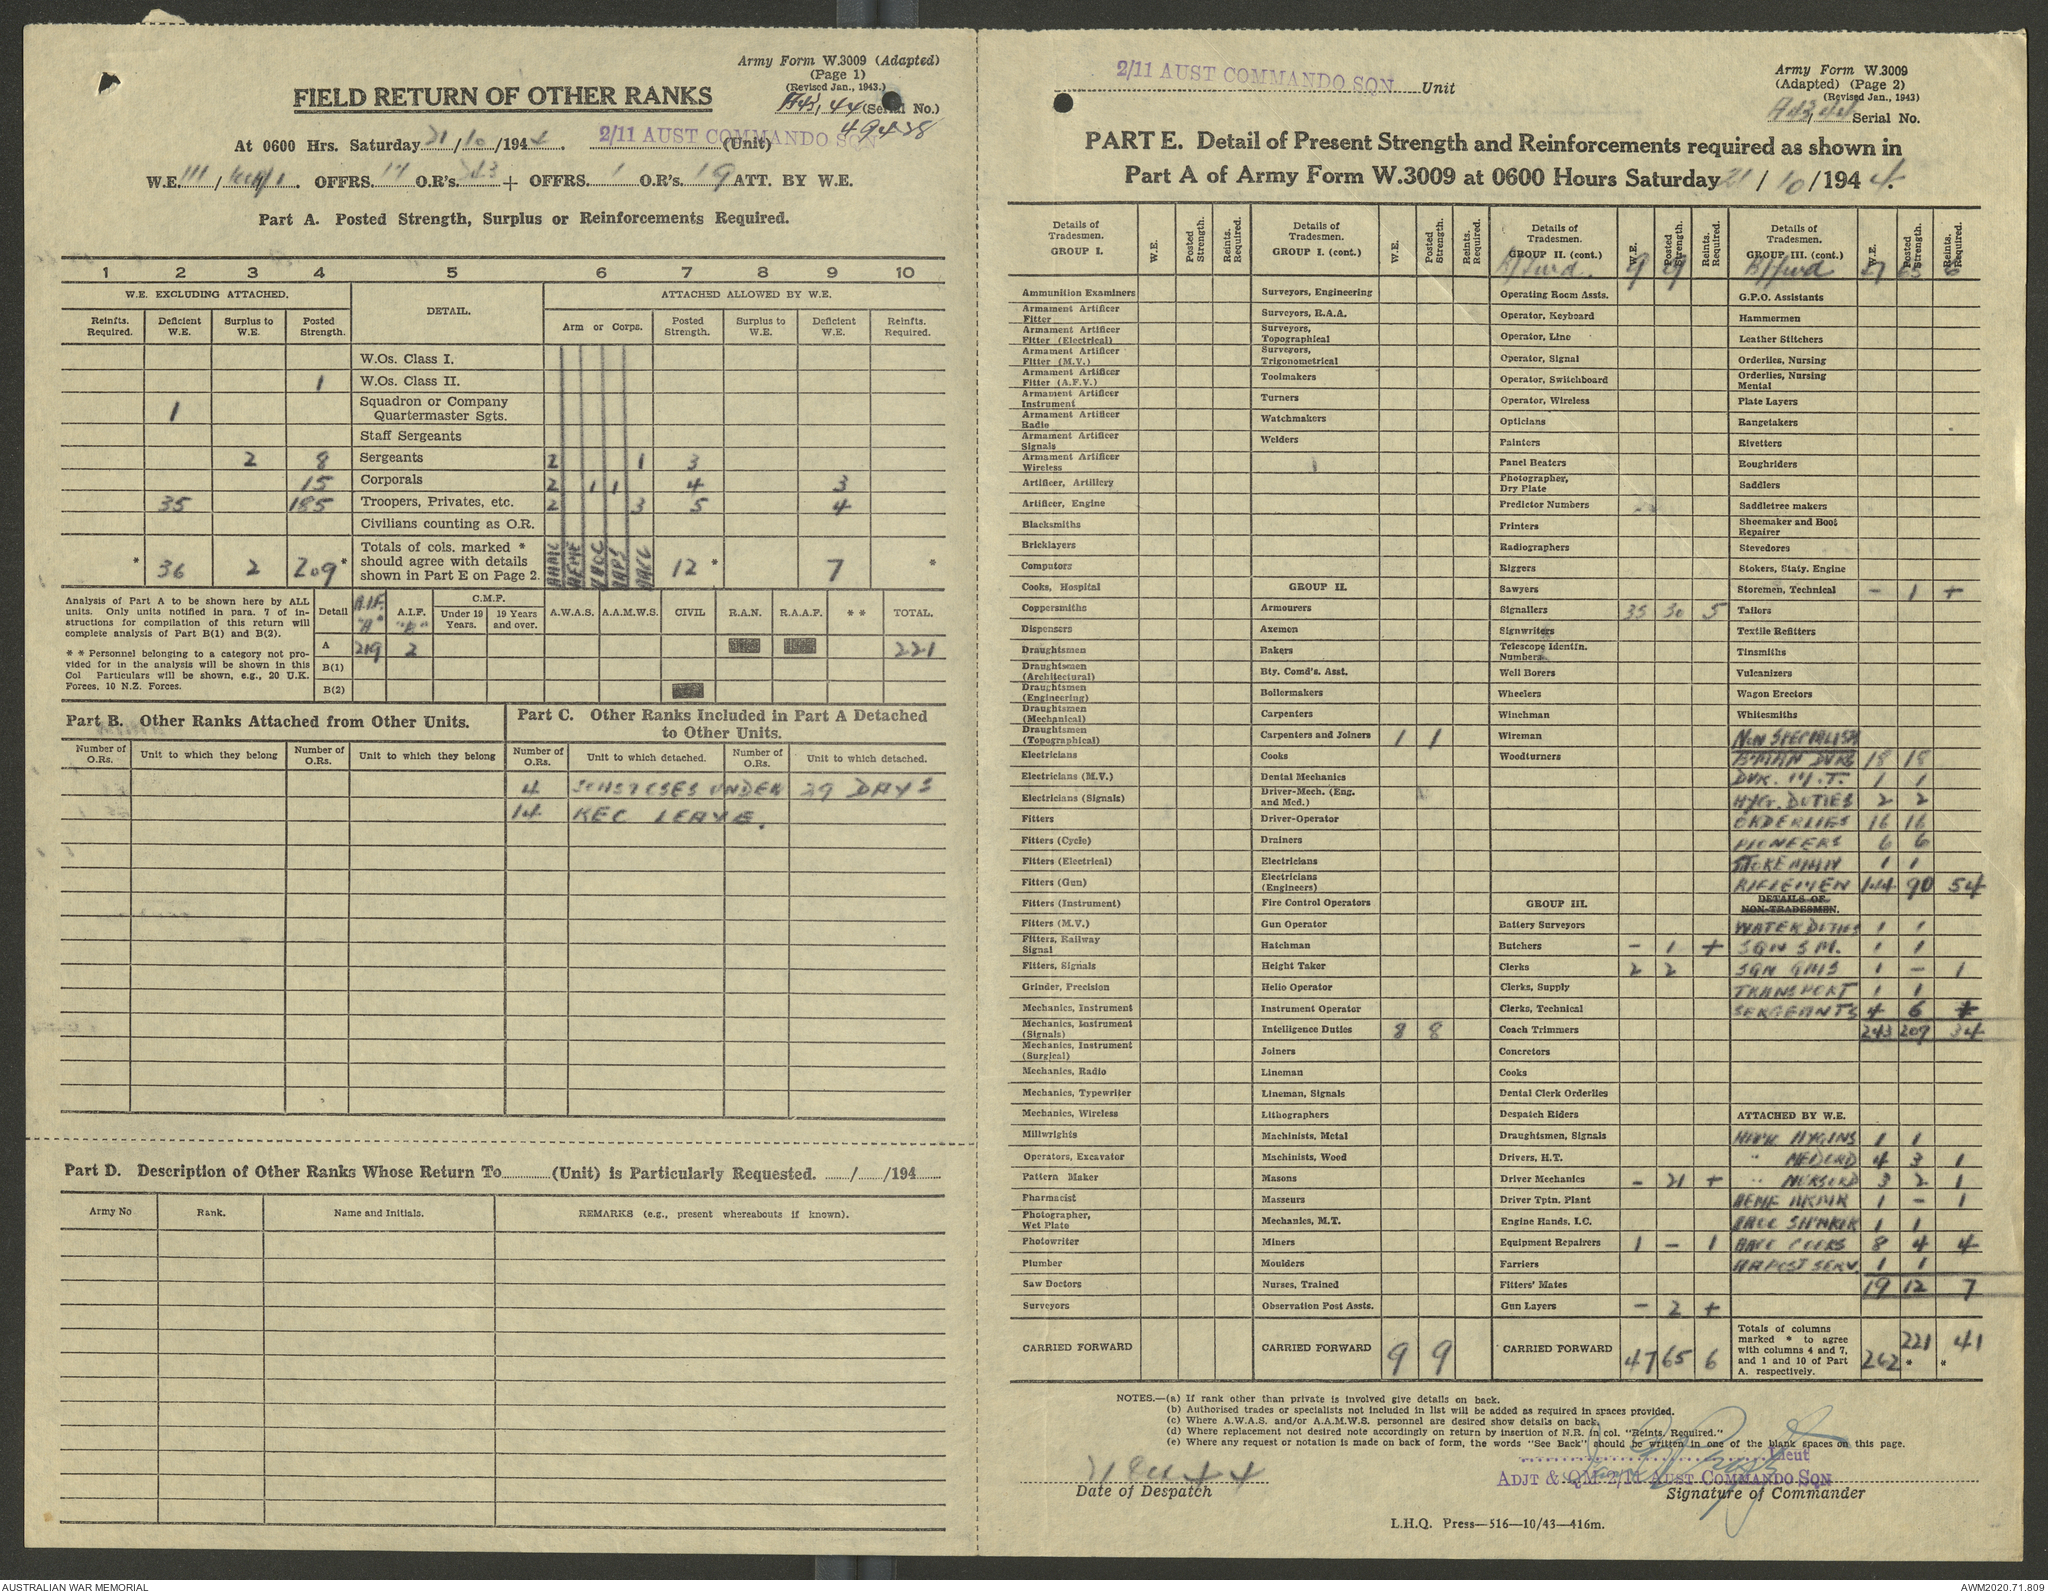 Army Form W.3009 (Adapted)
(Page 1)
(Revised Jan., 1943.)
FIELD RETURN OF OTHER RANKS
(Serial No.)
49428
At 0600 Hrs. Saturday 21/10/1944. 2/11 AUST COMMANDO SQN (Unit)
W.E. 111/ OFFRS. 17 O.R's. 243 + OFFRS. 1 O.R's. 19 ATT. BY W.E.
Part A. Posted Strength, Surplus or Reinforcements Required.
1 2 3 4 5 6 7 8 9 10
W.E. EXCLUDING ATTACHED. DETAIL. ATTACHED ALLOWED BY W.E.
Reinfts. Required. Deficient W.E. Surplus to W.E. Posted Strength. Arm or Corps. Posted Strength. Surplus to W.E. Deficient W.E. Reinfts. Required.
W.Os. Class I.
1 W.Os. Class II.
1 Squadron or Company Quartermaster Sgts.
Staff Sergeants
2 8 Sergeants 2 1 3
15 Corporals 2 1 1 4 3
35 185 Troopers, Privates, etc. 2 3 5 4
Civilians counting as O.R.
* 36 2 209 * Totals of cols. marked * should agree with details shown in Part E on Page 2. AAMC AEME AAOC AAPS AACC 12 * 7 *
Analysis of Part A to be shown here by ALL units. Only units notified in para. 7 of instructions for compilation of this return will complete analysis of Part B(1) and B(2).
* * Personnel belonging to a category not provided for in the analysis will be shown in this Col Particulars will be shown, e.g., 20 U.K. Forces, 10 N.Z. Forces.
Detail A.I.F. "A" A.I.F. "B" C.M.F. Under 19 Years. 19 Years and over. A.W.A.S. A.A.M.W.S. CIVIL R.A.N. R.A.A.F. * * TOTAL.
A 219 2 221
B(1)
B(2)
Part B. Other Ranks Attached from Other Units.
Number of O.Rs. Unit to which they belong Number of O.Rs. Unit to which they belong
Part C. Other Ranks Included in Part A Detached to Other Units.
Number of O.Rs. Unit to which detached. Number of O.Rs. Unit to which detached.
4 SCHS & CSES UNDER 29 DAYS
14 REC LEAVE.
Part D. Description of Other Ranks Whose Return To (Unit) is Particularly Requested. / /194
Army No Rank. Name and Initials. REMARKS (e.g., present whereabouts if known).
2/11 AUST COMMANDO SQN Unit
Army Form W.3009
(Adapted) (Page 2)
(Revised Jan., 1943)
Serial No.
PART E. Detail of Present Strength and Reinforcements required as shown in
Part A of Army Form W.3009 at 0600 Hours Saturday 21/10/1944.
Details of Tradesmen. GROUP I. W.E. Posted Strength. Reints. Required.
Ammunition Examiners
Armament Artificer Fitter
Armament Artificer Fitter (Electrical)
Armament Artificer Fitter (M.V.)
Armament Artificer Fitter (A.F.V.)
Armament Artificer Instrument
Armament Artificer Radio
Armament Artificer Signals
Armament Artificer Wireless
Artificer, Artillery
Artificer, Engine
Blacksmiths
Bricklayers
Computors
Cooks, Hospital
Coppersmiths
Dispensers
Draughtsmen
Draughtsmen (Architectural)
Draughtsmen (Engineering)
Draughtsmen (Mechanical)
Draughtsmen (Topographical)
Electricians
Electricians (M.V.)
Electricians (Signals)
Fitters
Fitters (Cycle)
Fitters (Electrical)
Fitters (Gun)
Fitters (Instrument)
Fitters (M.V.)
Fitters, Railway Signal
Fitters, Signals
Grinder, Precision
Mechanics, Instrument
Mechanics, Instrument (Signals)
Mechanics, Instrument (Surgical)
Mechanics, Radio
Mechanics, Typewriter
Mechanics, Wireless
Millwrights
Operators, Excavator
Pattern Maker
Pharmacist
Photographer, Wet Plate
Photowriter
Plumber
Saw Doctors
Surveyors
CARRIED FORWARD
Details of Tradesmen. GROUP I. (cont.) W.E. Posted Strength. Reints. Required.
Surveyors, Engineering
Surveyors, R.A.A.
Surveyors, Topographical
Surveyors, Trigonometrical
Toolmakers
Turners
Watchmakers
Welders
GROUP II.
Armourers
Axemen
Bakers
Bty. Comd's. Asst.
Boilermakers
Carpenters
Carpenters and Joiners 1 1
Cooks
Dental Mechanics
Driver-Mech. (Eng. and Mcd.)
Driver-Operator
Drainers
Electricians
Electricians (Engineers)
Fire Control Operators
Gun Operator
Hatchman
Height Taker
Helio Operator
Instrument Operator
Intelligence Duties 8 8
Joiners
Lineman
Lineman, Signals
Lithographers
Machinists, Metal
Machinists, Wood
Masons
Masseurs
Mechanics, M.T.
Miners
Moulders
Nurses, Trained
Observation Post Assts.
CARRIED FORWARD 9 9
Details of Tradesmen. GROUP II. (cont.) W.E. Posted Strength. Reints. Required.
B/fwd. 9 9
Operating Room Assts.
Operator, Keyboard
Operator, Line
Operator, Signal
Operator, Switchboard
Operator, Wireless
Opticians
Painters
Panel Beaters
Photographer, Dry Plate
Predictor Numbers
Printers
Radiographers
Riggers
Sawyers
Signallers 35 30 5
Signwriters
Telescope Identfn. Numbers
Well Borers
Wheelers
Winchman
Wireman
Woodturners
GROUP III.
Battery Surveyors
Butchers - 1 +
Clerks 2 2
Clerks, Supply
Clerks, Technical
Coach Trimmers
Concretors
Cooks
Dental Clerk Orderlies
Despatch Riders
Draughtsmen, Signals
Drivers, H.T.
Driver Mechanics - 21 +
Driver Tptn. Plant
Engine Hands, I.C.
Equipment Repairers 1 - 1
Farriers
Fitters' Mates
Gun Layers - 2 +
CARRIED FORWARD 47 65 6
Details of Tradesmen. GROUP III. (cont.) W.E. Posted Strength. Reints. Required.
B/fwd 47 65 6
G.P.O. Assistants
Hammermen
Leather Stitchers
Orderlies, Nursing
Orderlies, Nursing Mental
Plate Layers
Rangetakers
Rivetters
Roughriders
Saddlers
Saddletree makers
Shoemaker and Boot Repairer
Stevedores
Stokers, Staty. Engine
Storemen, Technical - 1 +
Tailors
Textile Refitters
Tinsmiths
Vulcanizers
Wagon Erectors
Whitesmiths
NON SPECIALISTS
B'MAN DVRS 18 18
DVR. M.T. 1 1
HYG. DUTIES 2 2
ORDERLIES 16 16
PIONEERS 6 6
STOREMAN 1 1
RIFLEMEN 144 90 54
DETAILS OF NON-TRADESMEN.
WATER DUTIES 1 1
SQN S M. 1 1
SQN QMS 1 - 1
TRANSPORT 1 1
SERGEANTS 4 6 +
243 209 34
ATTACHED BY W.E.
1 1
" MED ORD 4 3 1
" NURS ORD 3 2 1
AEME 1 - 1
AAOC 1 1
AACC COOKS 8 4 4
AA POST SERV. 1 1
19 12 7
Totals of columns marked * to agree with columns 4 and 7, and 1 and 10 of Part A. respectively. 262 221 * 41 *
NOTES.—(a) If rank other than private is involved give details on back.
(b) Authorised trades or specialists not included in list will be added as required in spaces provided.
(c) Where A.W.A.S. and/or A.A.M.W.S. personnel are desired show details on back.
(d) Where replacement not desired note accordingly on return by insertion of N.R. in col. "Reints. Required."
(e) Where any request or notation is made on back of form, the words "See Back" should be written in one of the blank spaces on this page.
21 Oct 44
Date of Despatch
Lieut
ADJT & QM 2/11 AUST COMMANDO SQN
Signature of Commander
L.H.Q. Press—516—10/43—416m.
AUSTRALIAN WAR MEMORIAL
AWM2020.71.809